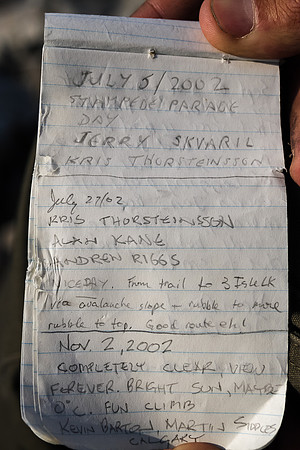 JULY 5/2002
STAMPEDE PARADE
DAY
JERRY SKVARIL
KRIS THORSTEINSSON
July 27/02
KRIS THORSTEINSSON
ALAN KANE
ANDREN RIGGS
NICE DAY. From trail to
via avalanche slope + rubble to more
rubble to top. Good route eh!
Nov. 2, 2002
COMPLETELY CLEAR, VIEW
FOREVER. BRIGHT SUN, MAYBE
0°C. FUN CLIMB
KEVIN BARTON, MARTIN SIDDLES
CALGARY